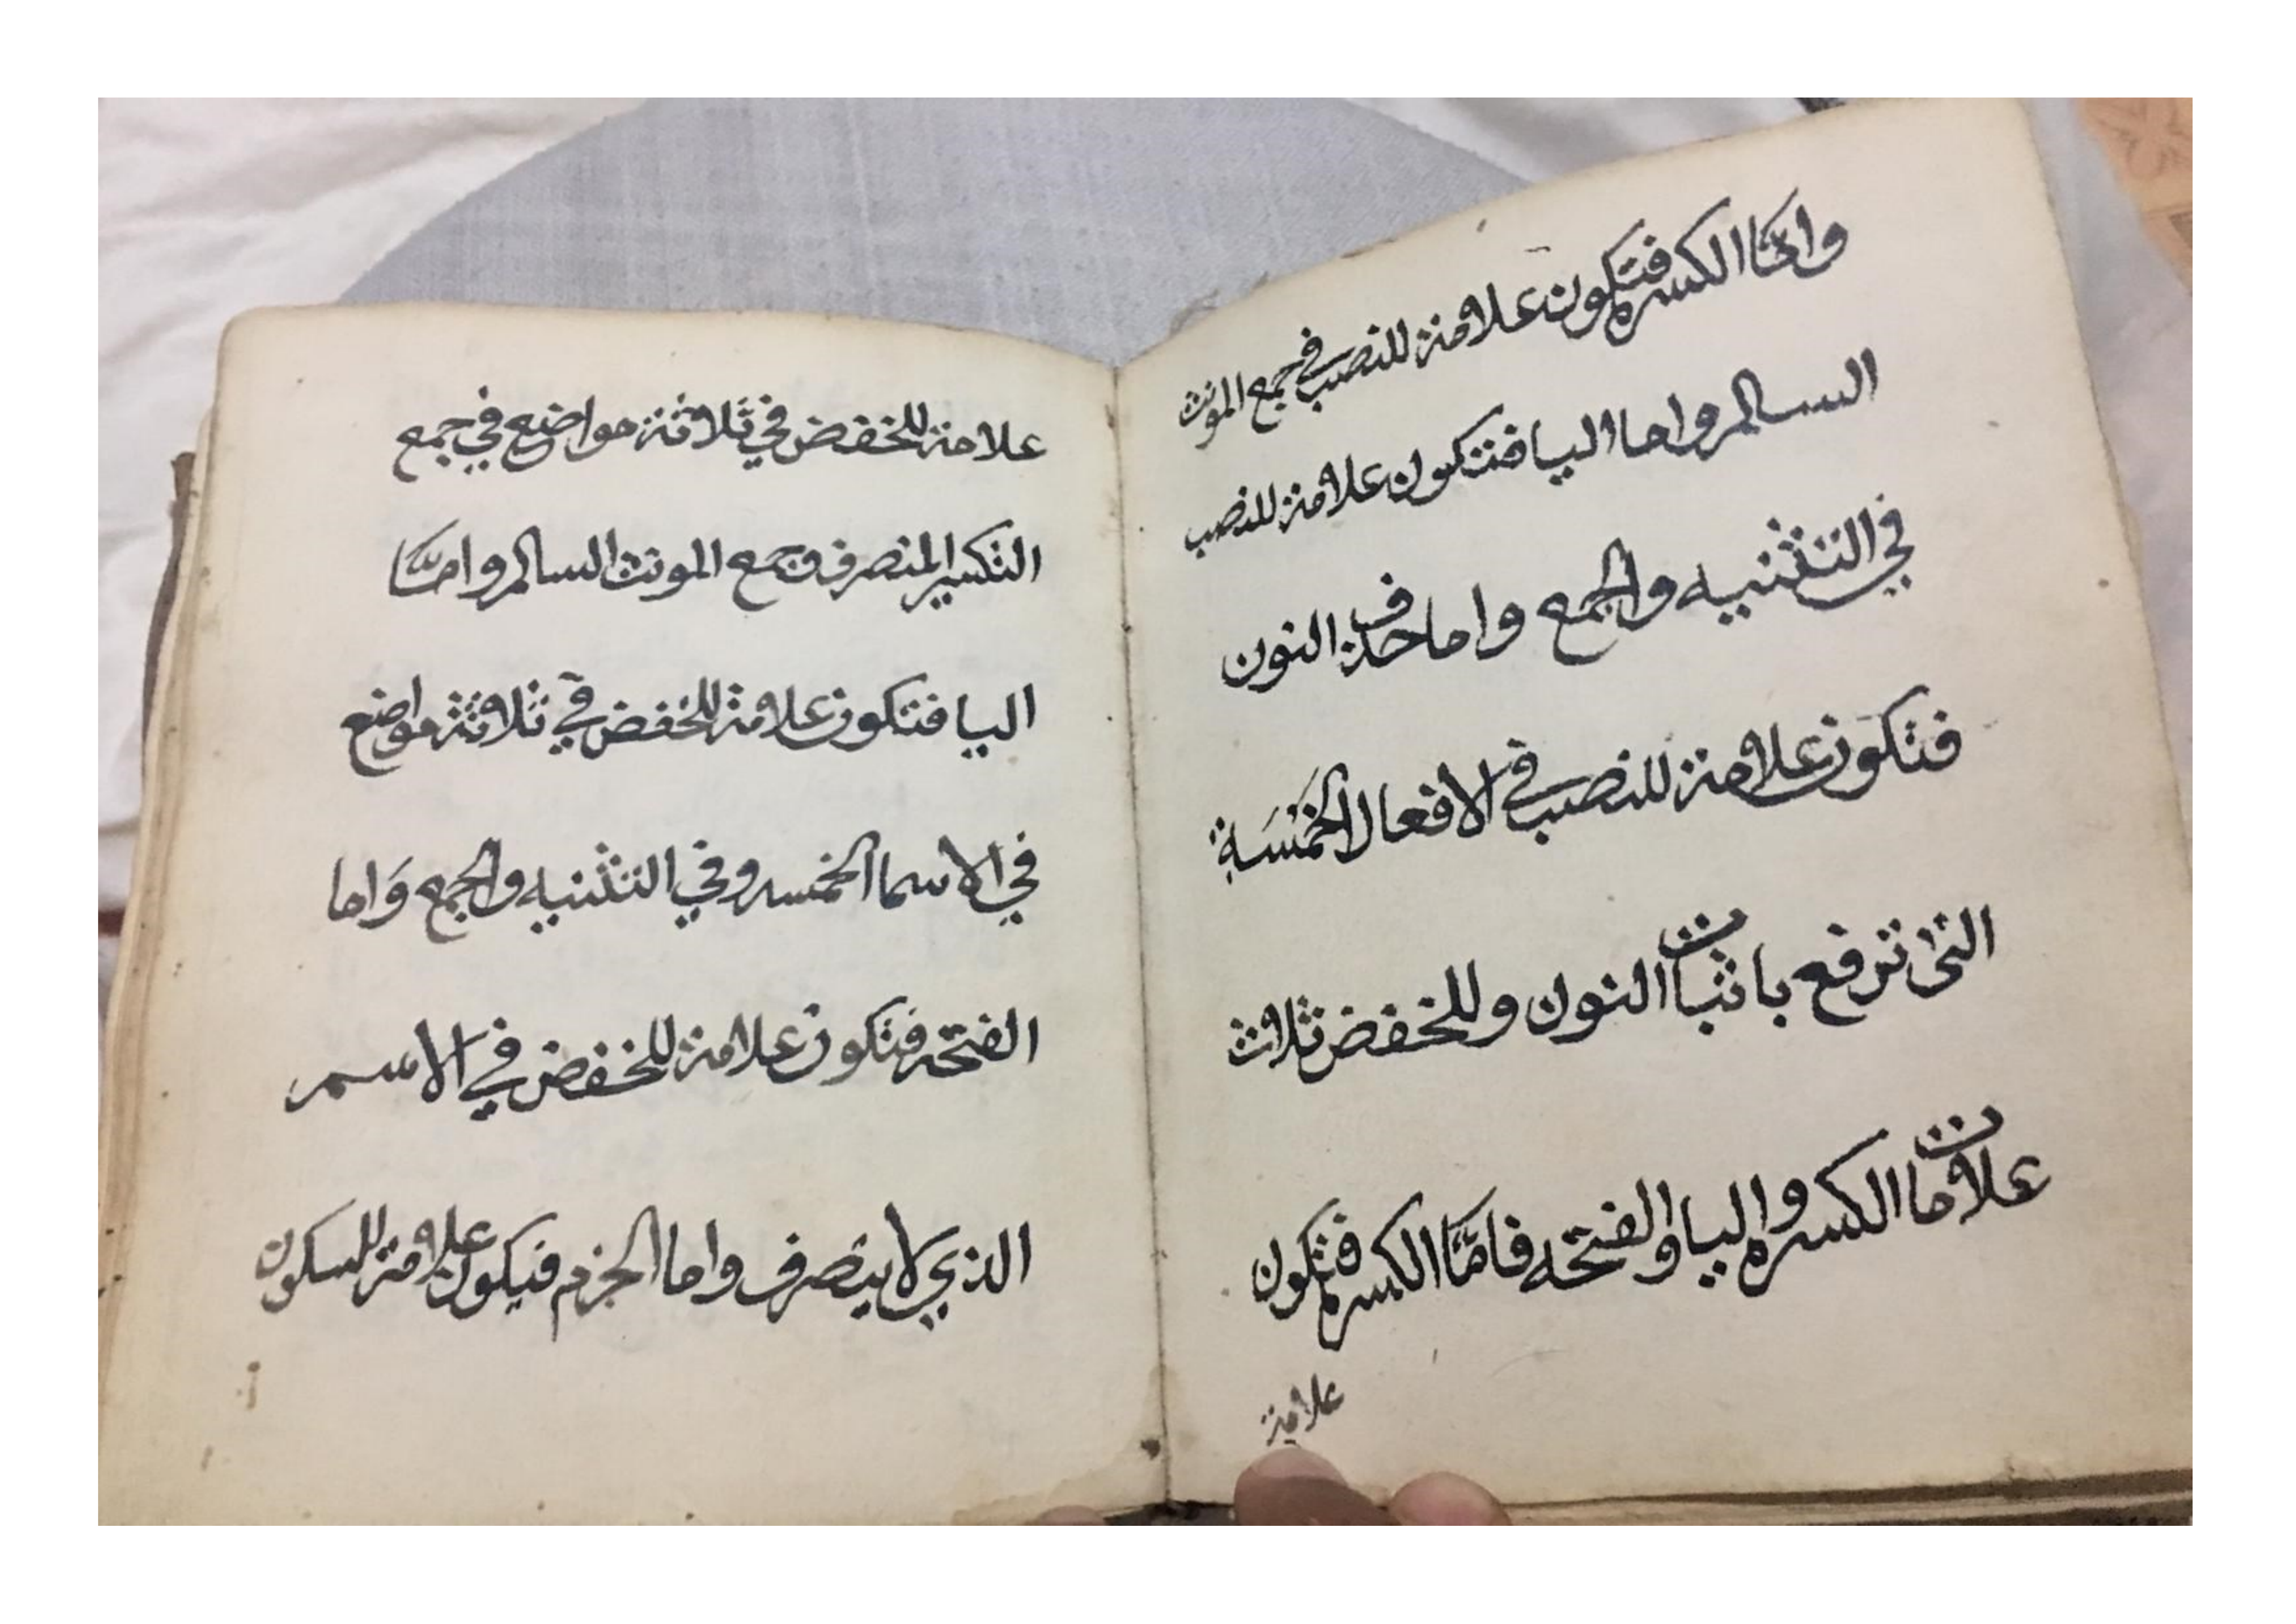 وامَّا الكسره فتكون علامة للنصب في جمع المونث
السالم واما اليا فتكون علامة للنصب
في التثنيه والجمع واما حذف النون
فتكون علامة للنصب في الافعال الخمَسَة
التى ترفع باثبات النون وللخفض ثلاث
علامات الكسره واليا والفتحه فامَّا الكسره فتكون
علامة
علامة للخفض في ثلاثة مواضع في جمع
التكسير المنصرف وجمع المونث السالم وامَّا
اليا فتكون علامة للخفض في ثلاثة مواضع
في الاسما الخمسه وفي التثنيه والجمع وَاما
الفتحه فتكون علامة للخفض في الاسم
الذي لا ينصرف واما الجزم فيكون علامة للسكون